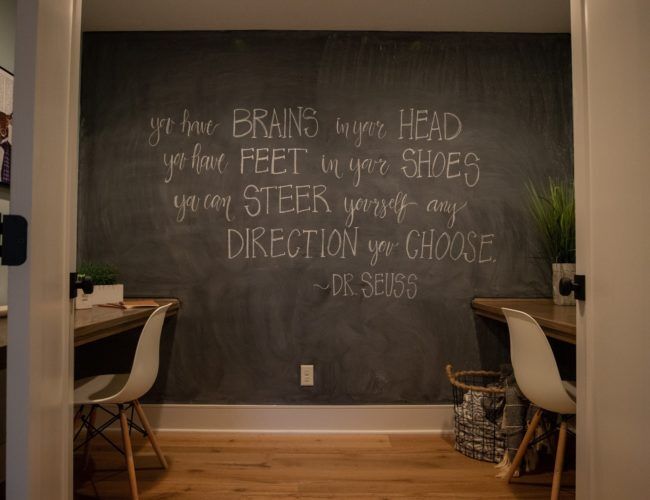 you have BRAINS in your HEAD
you have FEET in your SHOES
you can STEER yourself any
DIRECTION you CHOOSE.
~DR. SEUSS